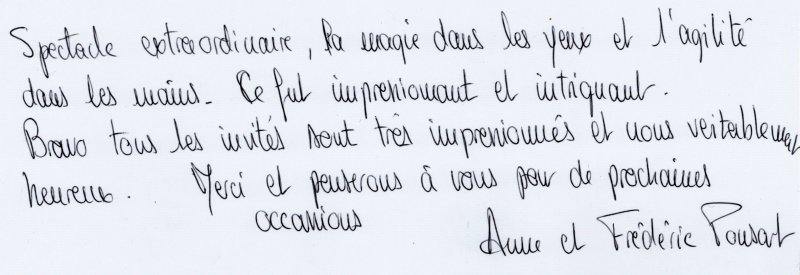 Spectacle extraordinaire, la magie dans les yeux et l'agilité
dans les mains. Ce fut impressionnant et intriguant.
Bravo tous les invités sont très impressionnés et nous veitablement
heureux. Merci et penserons à vous pour de prochaines
occassions
Anne et Frédéric Ponsart